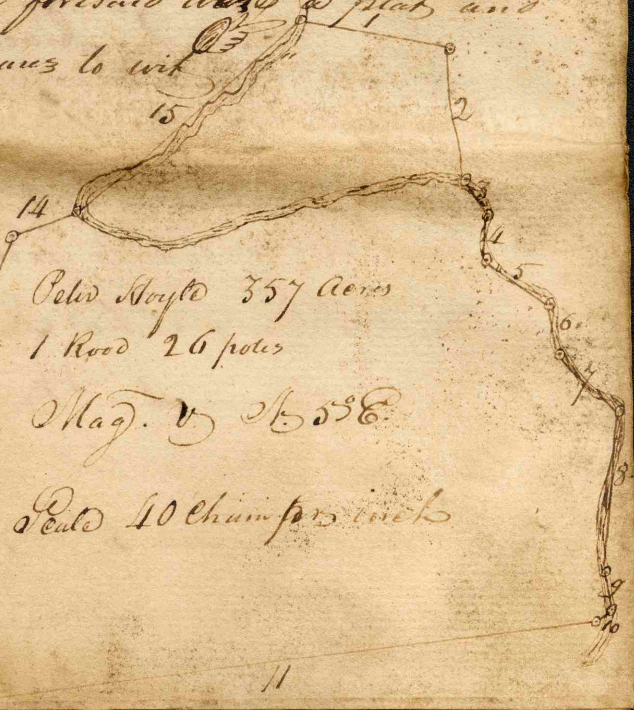 foresaid a plat and
to wit
1
2
15
3
14
4
5
6
7
8
9
10
11
Peter Hoyle 357 Acres
1 Rood 26 poles
Mag. V N 5° E
Scale 40 Chain per inch